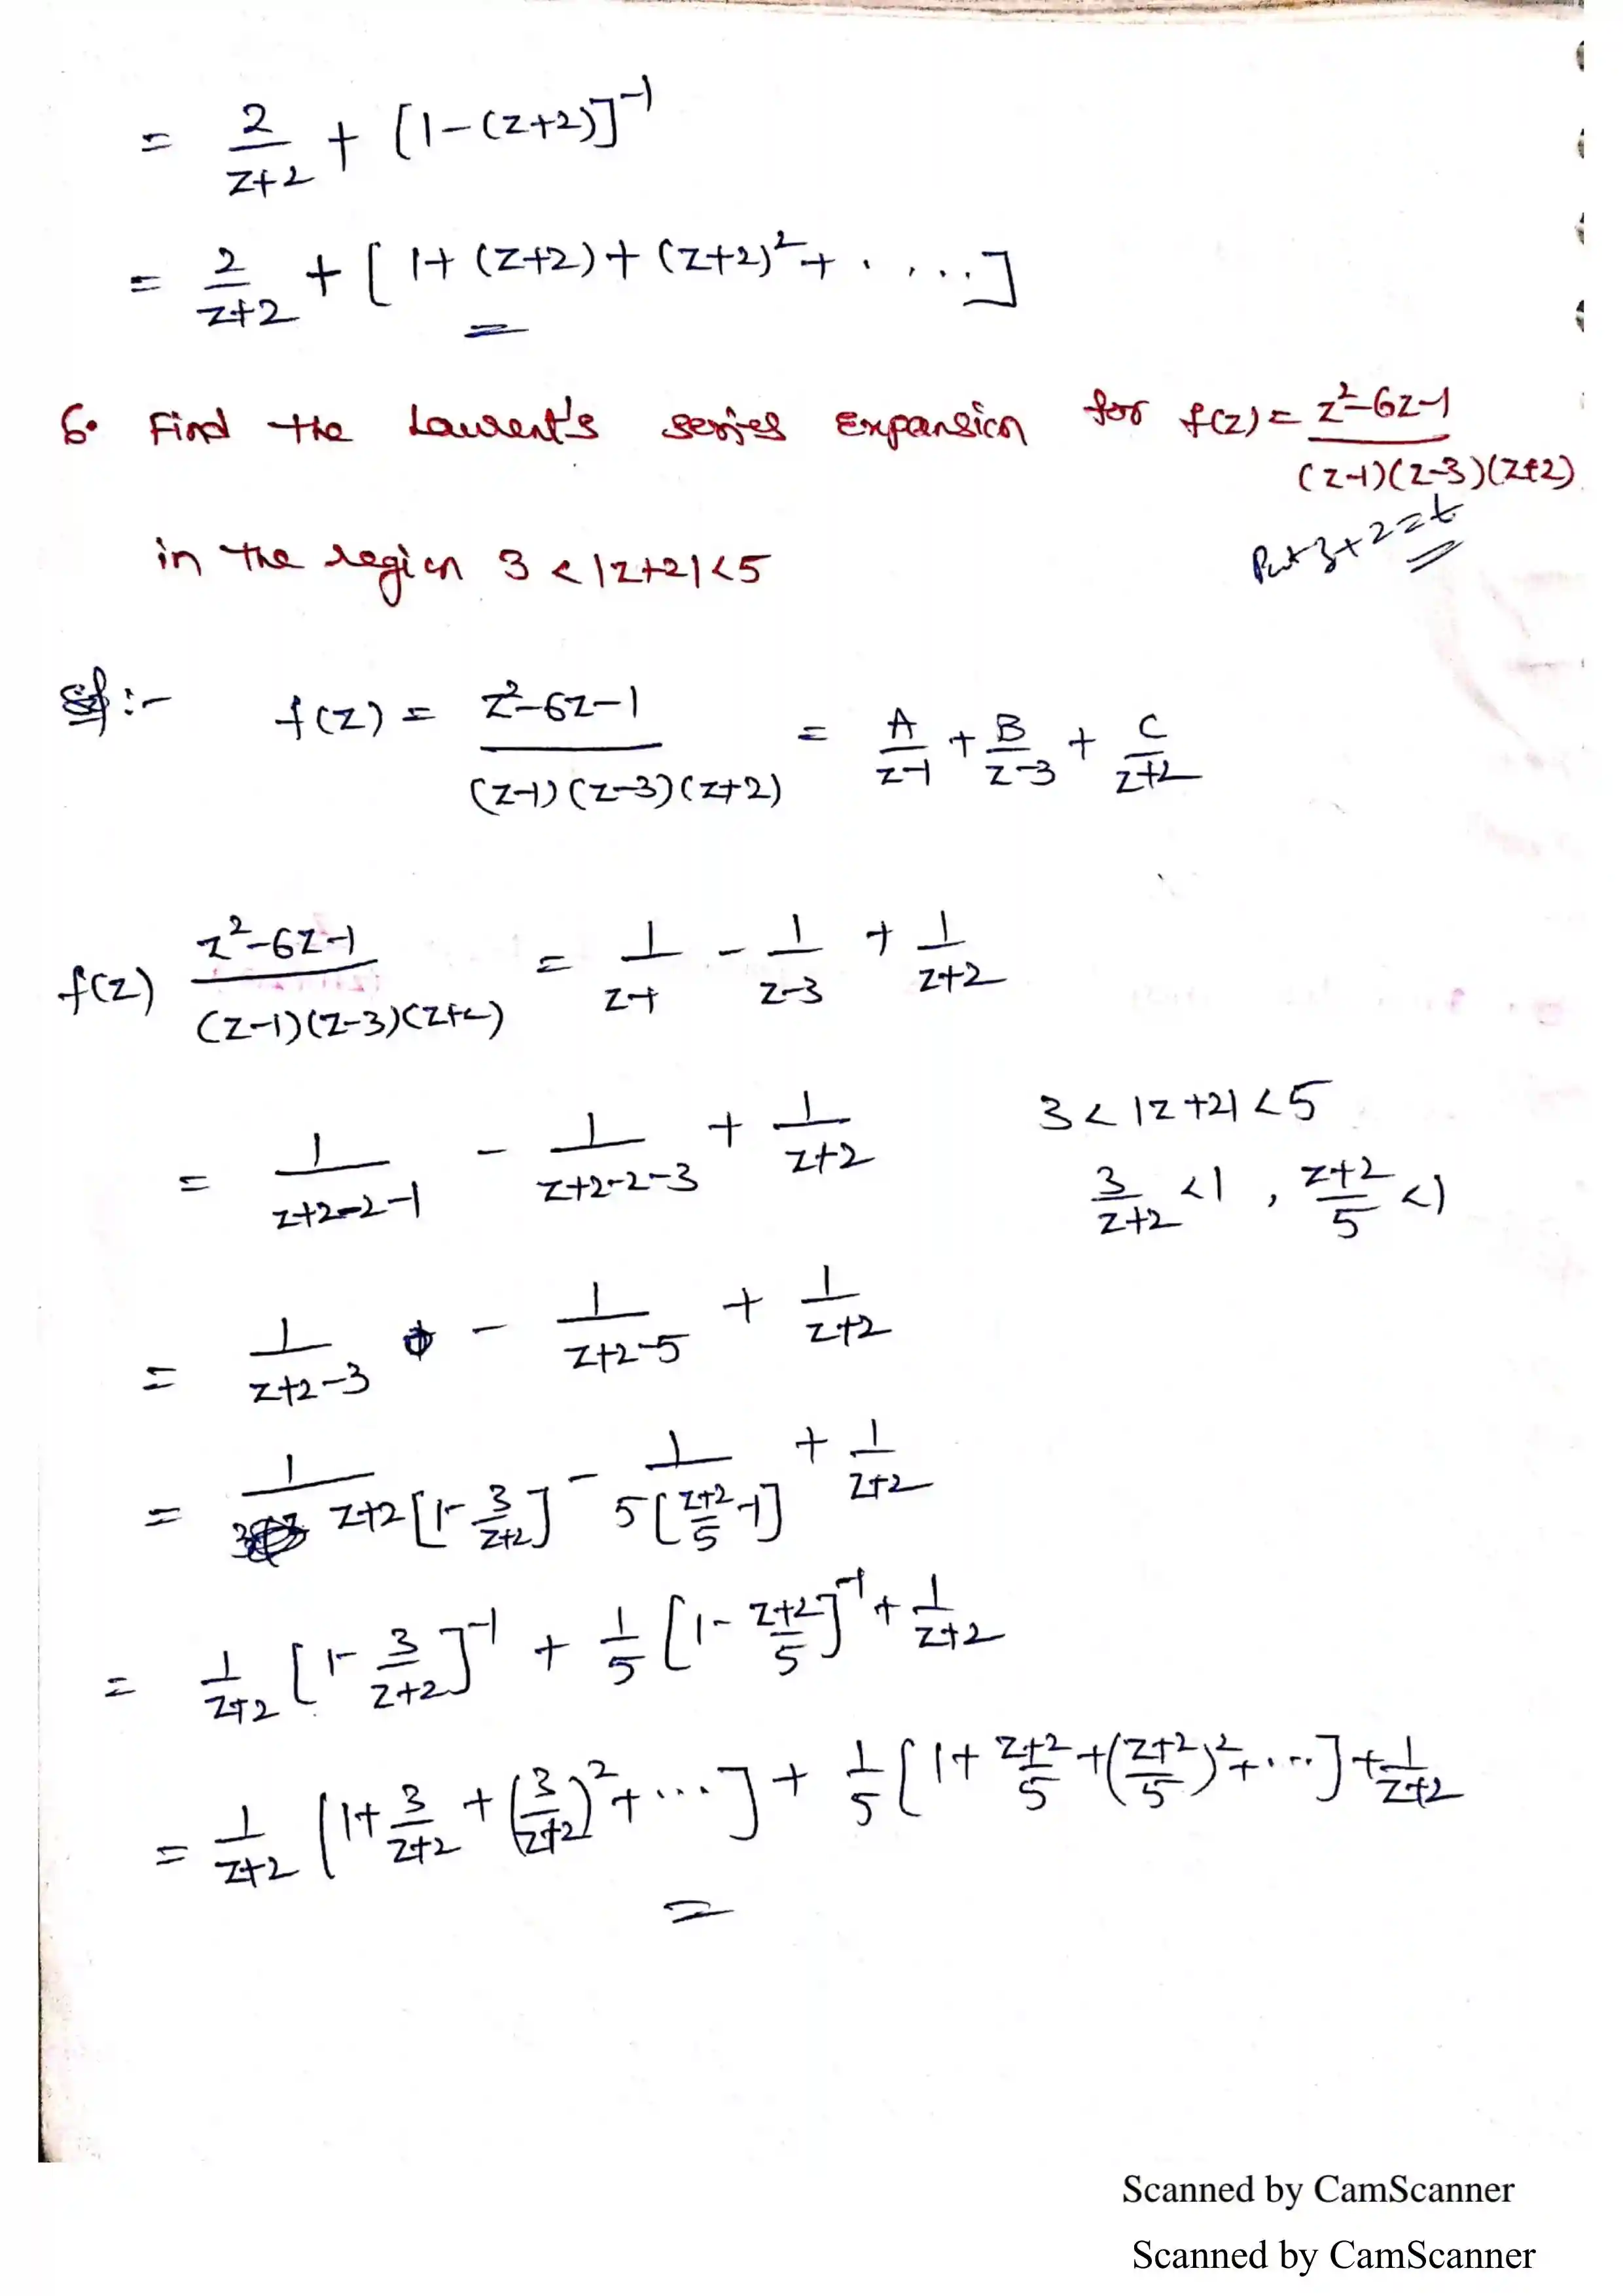 = 2/(z+2) + [1-(z+2)]^-1
= 2/(z+2) + [1+(z+2)+(z+2)^2+.....]
6. Find the Laurent's series Expansion for f(z) = (z^2-6z-1)/((z-1)(z-3)(z+2))
Put z+2=t
in the region 3<|z+2|<5
Sol:- f(z) = (z^2-6z-1)/((z-1)(z-3)(z+2)) = A/(z-1) + B/(z-3) + C/(z+2)
f(z) (z^2-6z-1)/((z-1)(z-3)(z+2)) = 1/(z-1) - 1/(z-3) + 1/(z+2)
= 1/(z+2-2-1) - 1/(z+2-2-3) + 1/(z+2) 3<|z+2|<5
3/(z+2) <1, (z+2)/5 <1
= 1/(z+2-3) - 1/(z+2-5) + 1/(z+2)
= 1/(z+2[1-3/(z+2)]) - 1/(5[(z+2)/5 -1]) + 1/(z+2)
= 1/(z+2) [1-3/(z+2)]^-1 + 1/5 [1-(z+2)/5]^-1 + 1/(z+2)
= 1/(z+2) [1+3/(z+2)+(3/(z+2))^2+...] + 1/5 [1+(z+2)/5+((z+2)/5)^2+...] + 1/(z+2)
Scanned by CamScanner
Scanned by CamScanner